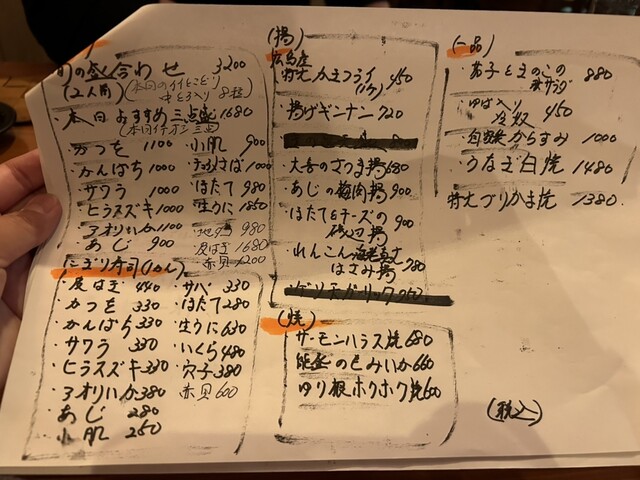 の盛り合わせ 3200
(2人前)
本日おすすめ三点盛 1680
かつを 1100
かんぱち 1000
サワラ 1000
ヒラスズキ 1000
アオリいか 1100
あじ 900
小肌 900
1000
ほたて 980
生うに 1850
地ダコ 980
皮はぎ 1680
赤貝 1200
にぎり寿司(1かん)
皮はぎ 440
かつを 330
かんぱち 330
サワラ 330
ヒラスズキ 330
アオリいか 380
あじ 280
小肌 250
サバ 330
ほたて 280
生うに 630
いくら 480
穴子 380
赤貝 600
(揚)
広島産
特大かきフライ (1ケ) 450
揚げギンナン 720
のさつま揚 680
あじの梅肉揚 900
ほたてとチーズの
磯辺揚 900
れんこん海老真丈
はさみ揚 780
(焼)
サーモンハラス焼 680
能登の色みいか 660
ゆり根ホクホク焼 600
(一品)
茄子ときのこの
サラダ 880
ゆば入り
冷奴 450
自家製からすみ 1000
うなぎ白焼 1480
特大ブリかま焼 1380
(税込)